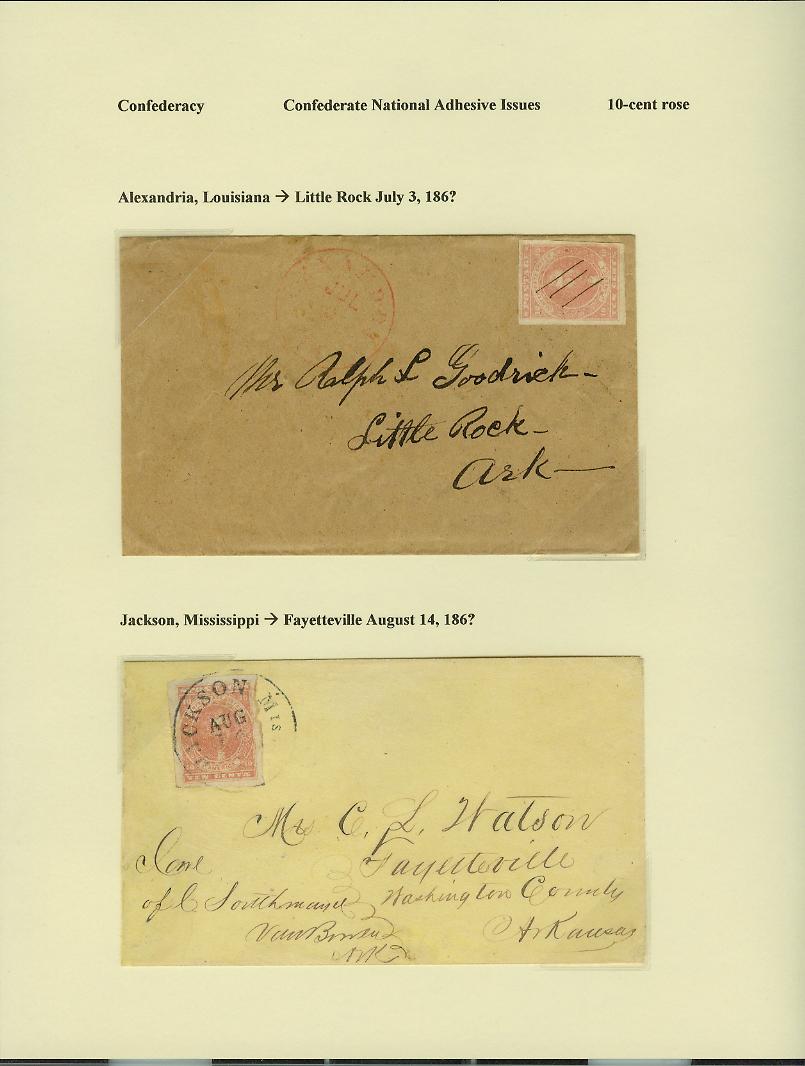 Confederacy Confederate National Adhesive Issues 10-cent rose
Alexandria, Louisiana → Little Rock July 3, 186?
JUL
Mr Ralph L Goodrich -
Little Rock -
Ark —
Jackson, Mississippi → Fayetteville August 14, 186?
JACKSON Mis
AUG
TEN CENTS
Mrs C. L. Watson
Fayetteville
Washington County
Arkansas
Care
of C Southmayd
Van Buren
Ark